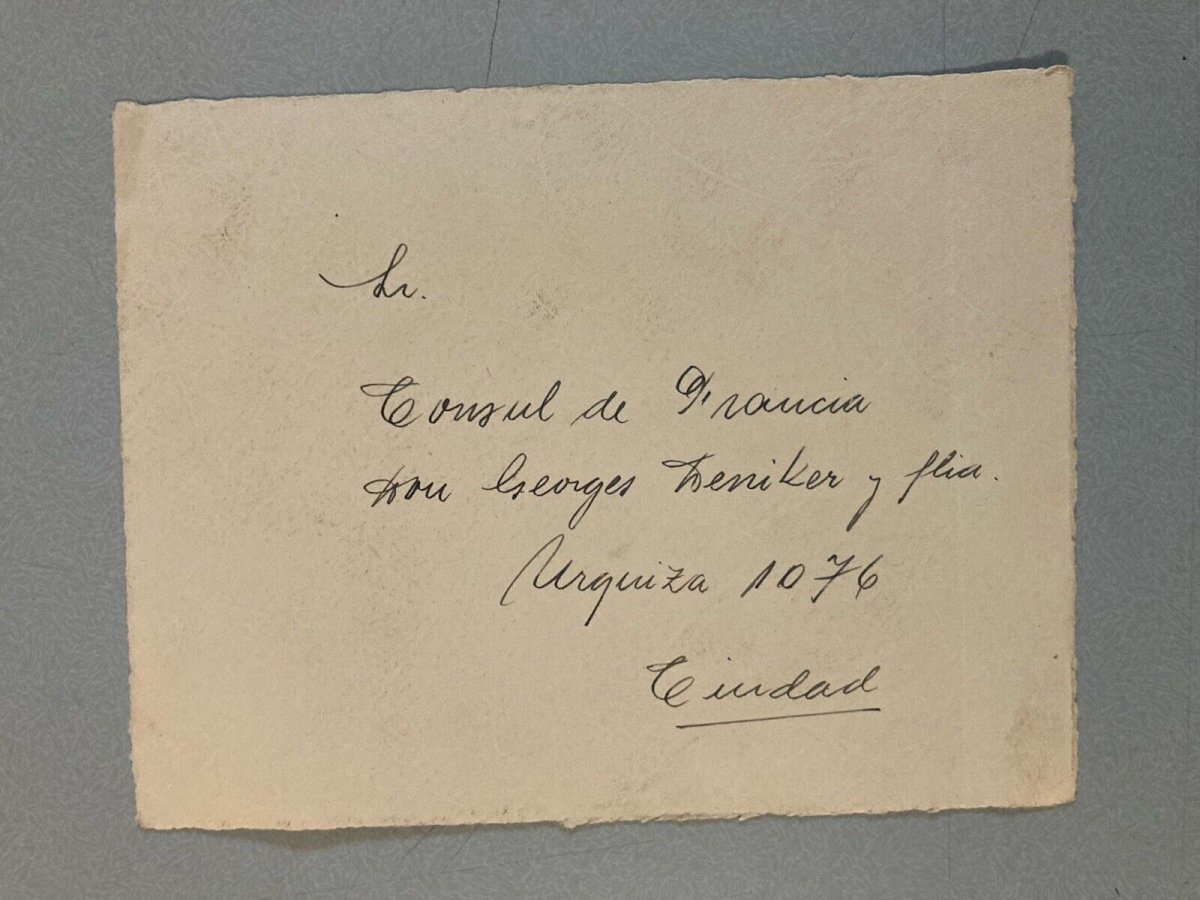 Sr.
Consul de Francia
Don Georges Deniker y flia.
Urquiza 1076
Ciudad